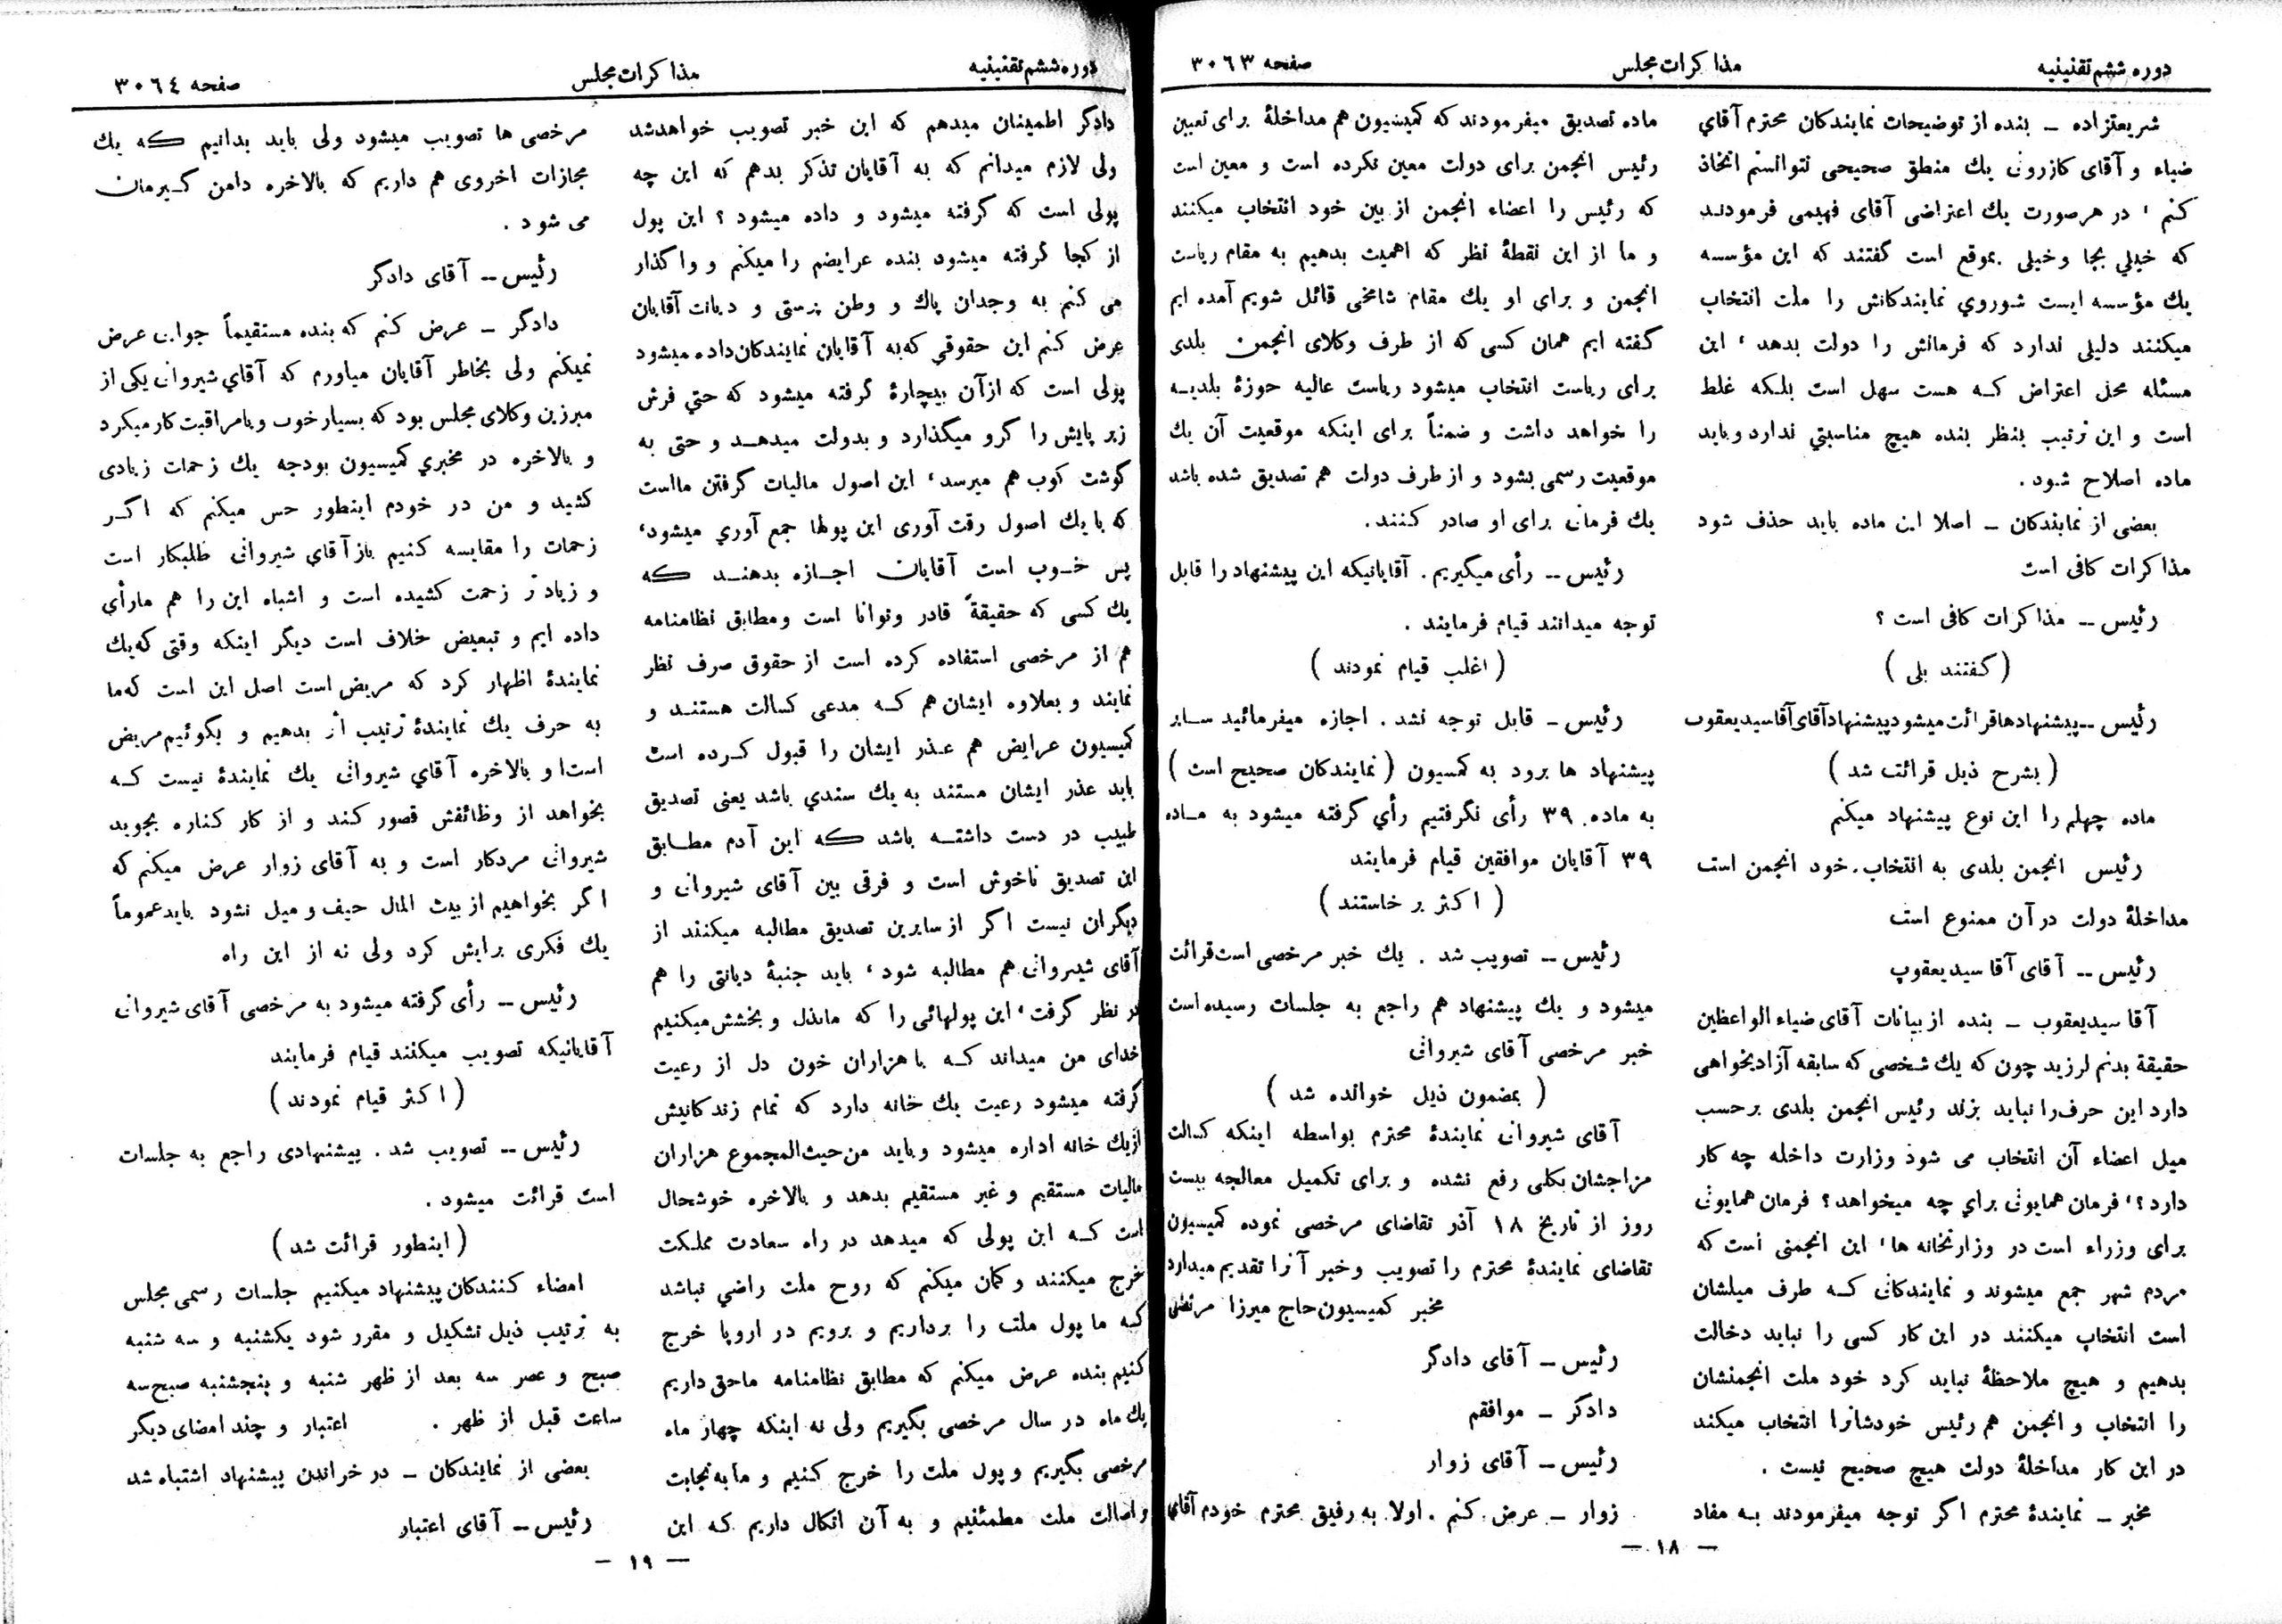 دوره ششم تقنینیه
مذاکرات مجلس
صفحه ۳۰۶۳
شریعتزاده ــ بنده از توضیحات نمایندکان محترم آقای
ضیاء و آقای کازرونی یك منطق صحیحی نتوانستم اتخاذ
کنم ، در هرصورت یك اعتراضی آقای فهیمی فرمودند
که خیلي بجا وخیلی بموقع است گفتند که این مؤسسه
یك مؤسسه ایست شوروي نمایندکانش را ملت انتخاب
میکنند دلیلی ندارد که فرمانش را دولت بدهد ، این
مسئله محل اعتراض که هست سهل است بلکه غلط
است و این ترتیب بنظر بنده هیچ مناسبتي ندارد و باید
ماده اصلاح شود .
بعضی از نمایندکان ــ اصلا این ماده باید حذف شود
مذاکرات کافی است
رئیس ــ مذاکرات کافی است ؟
( گفتند بلی )
رئیس ــ پیشنهادها قرائت میشود پیشنهاد آقای آقاسید یعقوب
( بشرح ذیل قرائت شد )
ماده چهلم را این نوع پیشنهاد میکنم
رئیس انجمن بلدی به انتخاب خود انجمن است
مداخلهٔ دولت در آن ممنوع است
رئیس ــ آقای آقا سید یعقوب
آقا سید یعقوب ــ بنده از بیانات آقای ضیاء الواعظین
حقیقة بدنم لرزید چون که یك شخصی که سابقه آزادیخواهی
دارد این حرف را نباید بزند رئیس انجمن بلدی برحسب
میل اعضاء آن انتخاب می شود وزارت داخله چه کار
دارد ؟ ، فرمان همایونی براي چه میخواهد ؟ فرمان همایونی
برای وزراء است در وزارتخانه ها ، این انجمنی است که
مردم شهر جمع میشوند و نمایندکانی که طرف میلشان
است انتخاب میکنند در این کار کسی را نباید دخالت
بدهیم و هیچ ملاحظهٔ نباید کرد خود ملت انجمنشان
را انتخاب و انجمن هم رئیس خودشانرا انتخاب میکند
در این کار مداخلهٔ دولت هیچ صحیح نیست .
مخبر ــ نمایندهٔ محترم اگر توجه میفرمودند به مفاد
ماده تصدیق میفرمودند که کمیسیون هم مداخلهٔ برای تعیین
رئیس انجمن برای دولت معین نکرده است و معین است
که رئیس را اعضاء انجمن از بین خود انتخاب میکنند
و ما از این نقطهٔ نظر که اهمیت بدهیم به مقام ریاست
انجمن و برای او یك مقام شامخی قائل شویم آمده ایم
گفته ایم همان کسی که از طرف وکلای انجمن بلدی
برای ریاست انتخاب میشود ریاست عالیه حوزهٔ بلدیه
را خواهد داشت و ضمناً برای اینکه موقعیت آن یك
موقعیت رسمی بشود و از طرف دولت هم تصدیق شده باشد
یك فرمانی برای او صادر کنند .
رئیس ــ رأی میگیریم . آقایانیکه این پیشنهاد را قابل
توجه میدانند قیام فرمایند .
( اغلب قیام نمودند )
رئیس ــ قابل توجه نشد . اجازه میفرمائید سایر
پیشنهاد ها برود به کمسیون ( نمایندکان صحیح است )
به ماده ۳۹ رأی نگرفتیم رأي گرفته میشود به ماده
۳۹ آقایان موافقین قیام فرمایند
( اکثر برخاستند )
رئیس ــ تصویب شد . یك خبر مرخصی است قرائت
میشود و یك پیشنهاد هم راجع به جلسات رسیده است
خبر مرخصی آقای شیروانی
( بمضمون ذیل خوانده شد )
آقای شیروانی نمایندهٔ محترم بواسطه اینکه کسالت
مزاجشان بکلی رفع نشده و برای تکمیل معالجه بیست
روز از تاریخ ۱۸ آذر تقاضای مرخصی نموده کمیسیون
تقاضای نمایندهٔ محترم را تصویب وخبر آنرا تقدیم میدارد
مخبر کمیسیون حاج میرزا مرتضی
رئیس ــ آقای دادگر
دادگر ــ موافقم
رئیس ــ آقای زوار
زوار ــ عرض کنم . اولا به رفیق محترم خودم آقای
— ۱۸ —
دوره ششم تقنینیه
مذاکرات مجلس
صفحه ۳۰۶٤
دادگر اطمینان میدهم که این خبر تصویب خواهدشد
ولی لازم میدانم که به آقایان تذکر بدهم که این چه
پولی است که گرفته میشود و داده میشود ؟ این پول
از کجا گرفته میشود بنده عرایضم را میکنم و واگذار
می کنم به وجدان پاك و وطن پرستی و دیانت آقایان
عرض کنم این حقوقي که به آقایان نمایندکان داده میشود
پولی است که از آن بیچارهٔ گرفته میشود که حتي فرش
زیر پایش را گرو میگذارد و بدولت میدهد و حتی به
گوشت کوب هم میرسد ، این اصول مالیات گرفتن ماست
که با یك اصول رقت آوری این پولها جمع آوري میشود ،
پس خوب است آقایان اجازه بدهند که
یك کسی که حقیقةً قادر وتوانا است ومطابق نظامنامه
هم از مرخصی استفاده کرده است از حقوق صرف نظر
نمایند و بعلاوه ایشان هم که مدعی کسالت هستند و
کمیسیون عرایض هم عذر ایشان را قبول کرده است
باید عذر ایشان مستند به یك سندي باشد یعنی تصدیق
طبیب در دست داشته باشد که این آدم مطابق
این تصدیق ناخوش است و فرقی بین آقای شیروانی و
دیگران نیست اگر از سایرین تصدیق مطالبه میکنند از
آقای شیروانی هم مطالبه شود ، باید جنبهٔ دیانتی را هم
در نظر گرفت ، این پولهائی را که مابذل و بخشش میکنیم
خدای من میداند که با هزاران خون دل از رعیت
گرفته میشود رعیت یك خانه دارد که تمام زندکانیش
ازیك خانه اداره میشود و باید من حیث المجموع هزاران
مالیات مستقیم و غیر مستقیم بدهد و بالاخره خوشحال
است که این پولی که میدهد در راه سعادت مملکت
خرج میکنند و گمان میکنم که روح ملت راضي نباشد
که ما پول ملت را برداریم و برویم در اروپا خرج
کنیم بنده عرض میکنم که مطابق نظامنامه ماحق داریم
یك ماه در سال مرخصی بگیریم ولی نه اینکه چهار ماه
مرخصی بگیریم و پول ملت را خرج کنیم و ما به نجابت
و اصالت ملت مطمئنیم و به آن اتکال داریم که این
مرخصی ها تصویب میشود ولی باید بدانیم که یك
مجازات اخروی هم داریم که بالاخره دامن گیرمان
می شود .
رئیس ــ آقای دادگر
دادگر ــ عرض کنم که بنده مستقیماً جوابی عرض
نمیکنم ولی بخاطر آقایان میاورم که آقاي شیروانی یکی از
مبرزین وکلای مجلس بود که بسیار خوب و بامراقبت کار میکرد
و بالاخره در مخبري کمیسیون بودجه یك زحمات زیادی
کشید و من در خودم اینطور حس میکنم که اگر
زحمات را مقایسه کنیم باز آقاي شیروانی طلبکار است
و زیادتر زحمت کشیده است و اشباه این را هم مارأی
داده ایم و تبعیض خلاف است دیگر اینکه وقتی که یك
نمایندهٔ اظهار کرد که مریض است اصل این است که ما
به حرف یك نمایندهٔ ترتیب اثر بدهیم و بگوئیم مریض
است و بالاخره آقاي شیروانی یك نمایندهٔ نیست که
بخواهد از وظائفش قصور کند و از کار کناره بجوید
شیروانی مردکار است و به آقای زوار عرض میکنم که
اگر بخواهیم از بیت المال حیف و میل نشود باید عموماً
یك فکری برایش کرد ولی نه از این راه
رئیس ــ رأی گرفته میشود به مرخصی آقای شیروانی
آقایانیکه تصویب میکنند قیام فرمایند
( اکثر قیام نمودند )
رئیس ــ تصویب شد . پیشنهادی راجع به جلسات
است قرائت میشود .
( اینطور قرائت شد )
امضاء کنندکان پیشنهاد میکنیم جلسات رسمی مجلس
به ترتیب ذیل تشکیل و مقرر شود یکشنبه و سه شنبه
صبح و عصر سه بعد از ظهر شنبه و پنجشنبه صبح سه
ساعت قبل از ظهر . اعتبار و چند امضای دیگر
بعضی از نمایندکان ــ در خواندن پیشنهاد اشتباه شد
رئیس ــ آقای اعتبار
— ۱۹ —